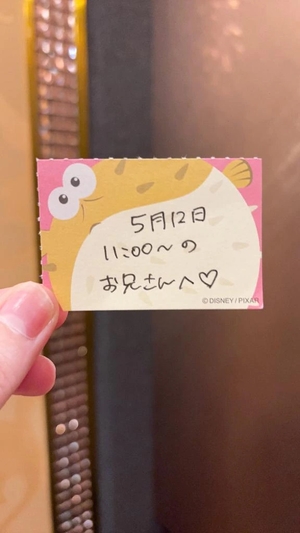 5月12日
11:00～の
お兄さんへ♡
© DISNEY / PIXAR